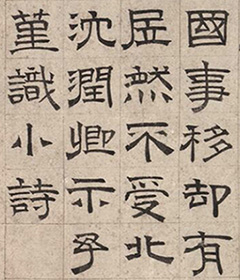 國事移却有
㞐然不受北
沈潤卿示予
堇識小詩